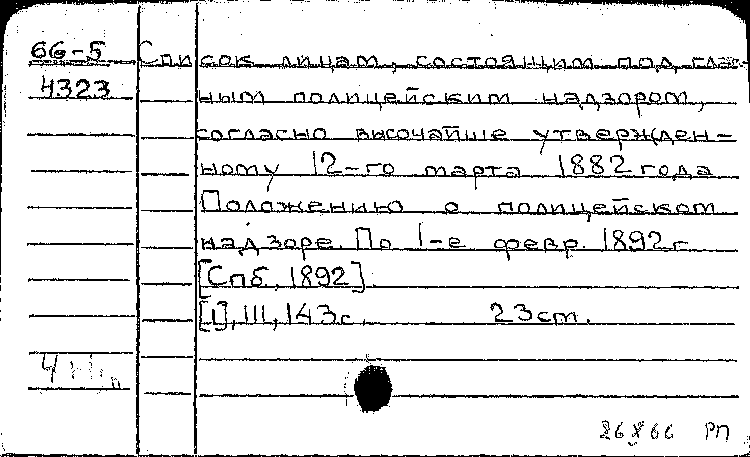 66-5 Список лицам, состоящим под глас-
4323 ным полицейским надзором,
согласно высочайше утвержден-
ному 12-го марта 1882 года
Положению о полицейском
надзоре. По 1-е февр. 1892 г
[Спб., 1892].
[1], III, 143 с. 23 см.
26 X 66 РП